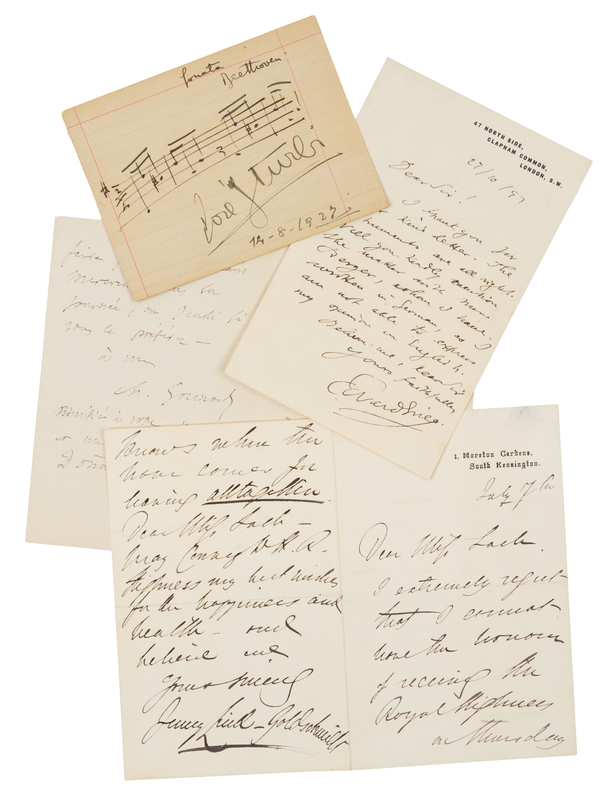 Sonata
Beethoven.
José Iturbi
14-8-1927
47 NORTH SIDE,
CLAPHAM COMMON,
LONDON, S.W.
27/10/97
Dear Sir!
I thank you for
kind letter. The
are all right.
Will you kindly
the
Berger, whom I have
written in German, as I
am not able to express
my opinion in English.
Believe me, dear Sir
Yours faithfully
Edvard Grieg.
faire
Mercredi
journée, ou Jeudi
vous le préférez
à vous
Ch. Gounod
knows when the
hour comes for
leaving alltogether.
Dear Miss
may Convey H. R.
Highness my best wishes
for the happiness and
health - and
believe me
yours sincerely
Jenny Lind-Goldschmidt
1, Moreton Gardens,
South Kensington.
July 7th
Dear Miss
I extremely regret
that I cannot
have the honour
of receiving the
Royal Highness
on Thursday